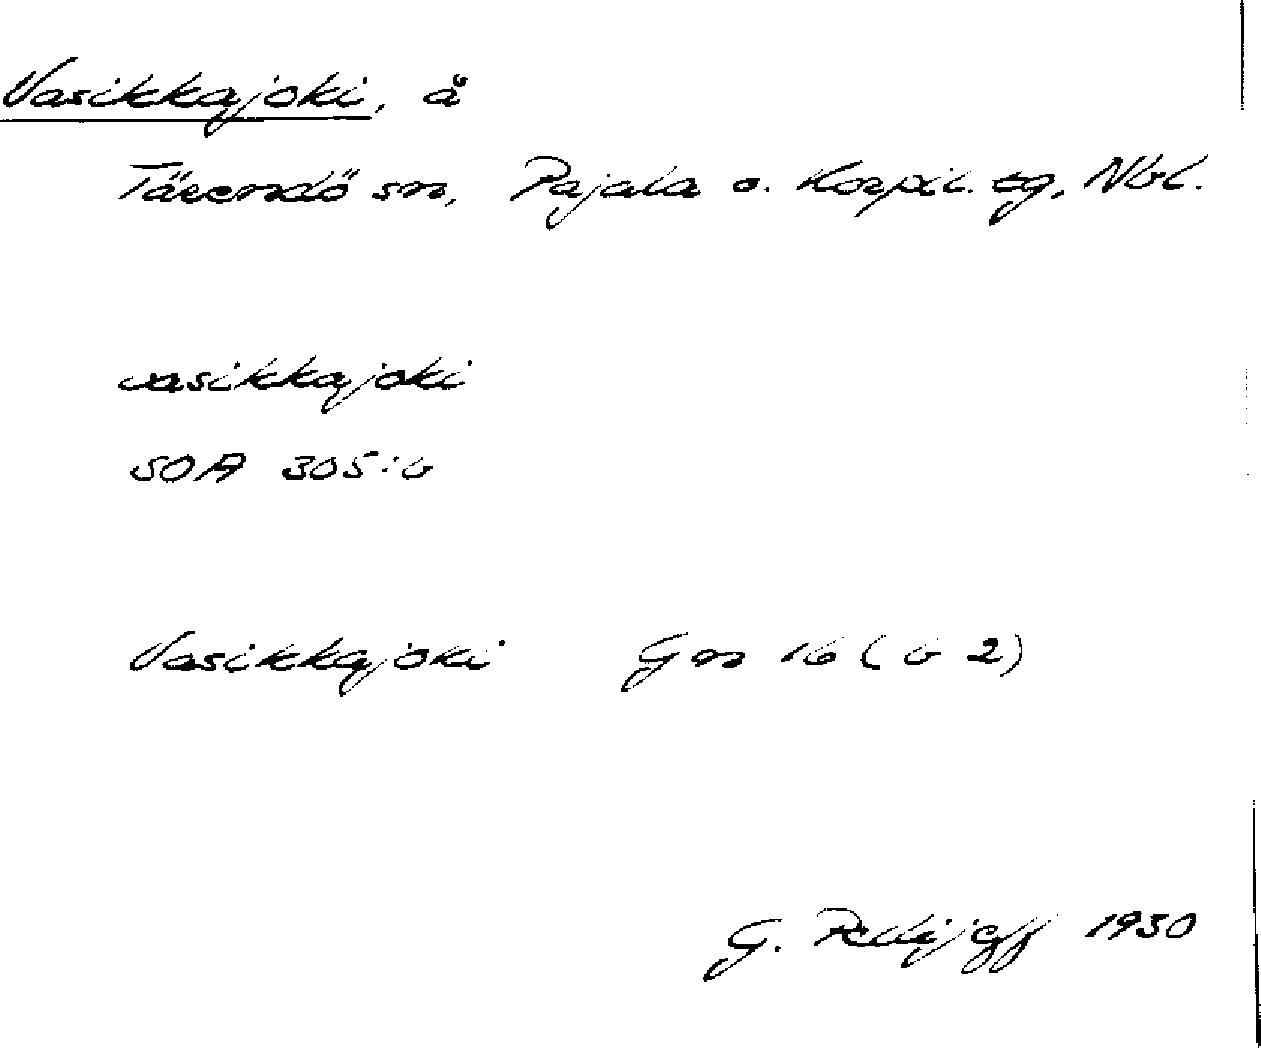 Vasikkajoki, å
Tärendö sn, Pajala o. Korpil. tg, Nbl.
vasikkajoki
SOA 305:6
Vasikkajoki Gn 16 (b 2)
G. Pellijeff 1930